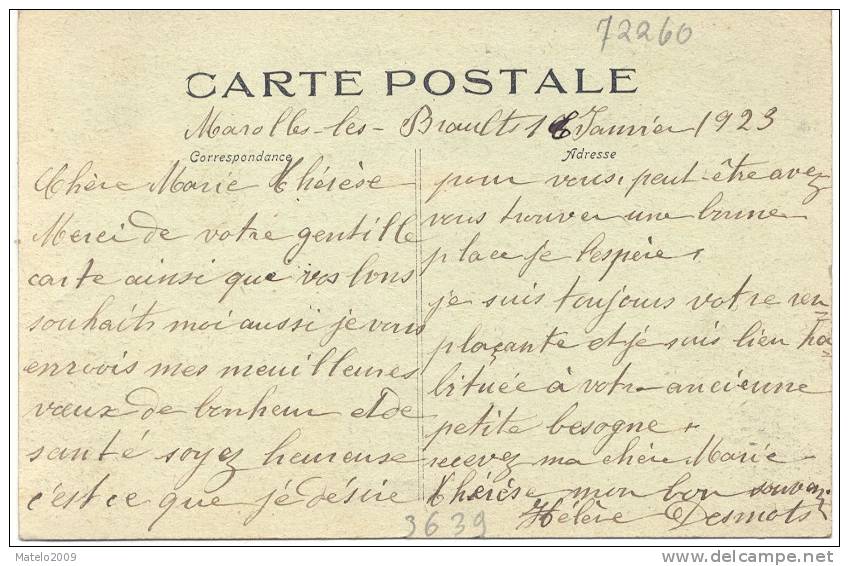 72260
CARTE POSTALE
Marolles-les-Braults 1 Janvier 1923
Correspondance
Adresse
Chère Marie Thérèse
Merci de votre gentille
carte ainsi que vos bons
souhaits moi aussi je vous
envoois mes meuilleures
vœux de bonheur et de
santé soyez heureuse
c'est ce que je désire
pour vous, peut-être avez
vous trouver une bonne
place je l'espère,
je suis toujours votre rem
plaçante et je suis bien ha
bituée à votre ancienne
petite besogne
recevez ma chère Marie
Thérèse mon bon souven.
Hélène Desmots
3639
Matelo2009
delcampe.net